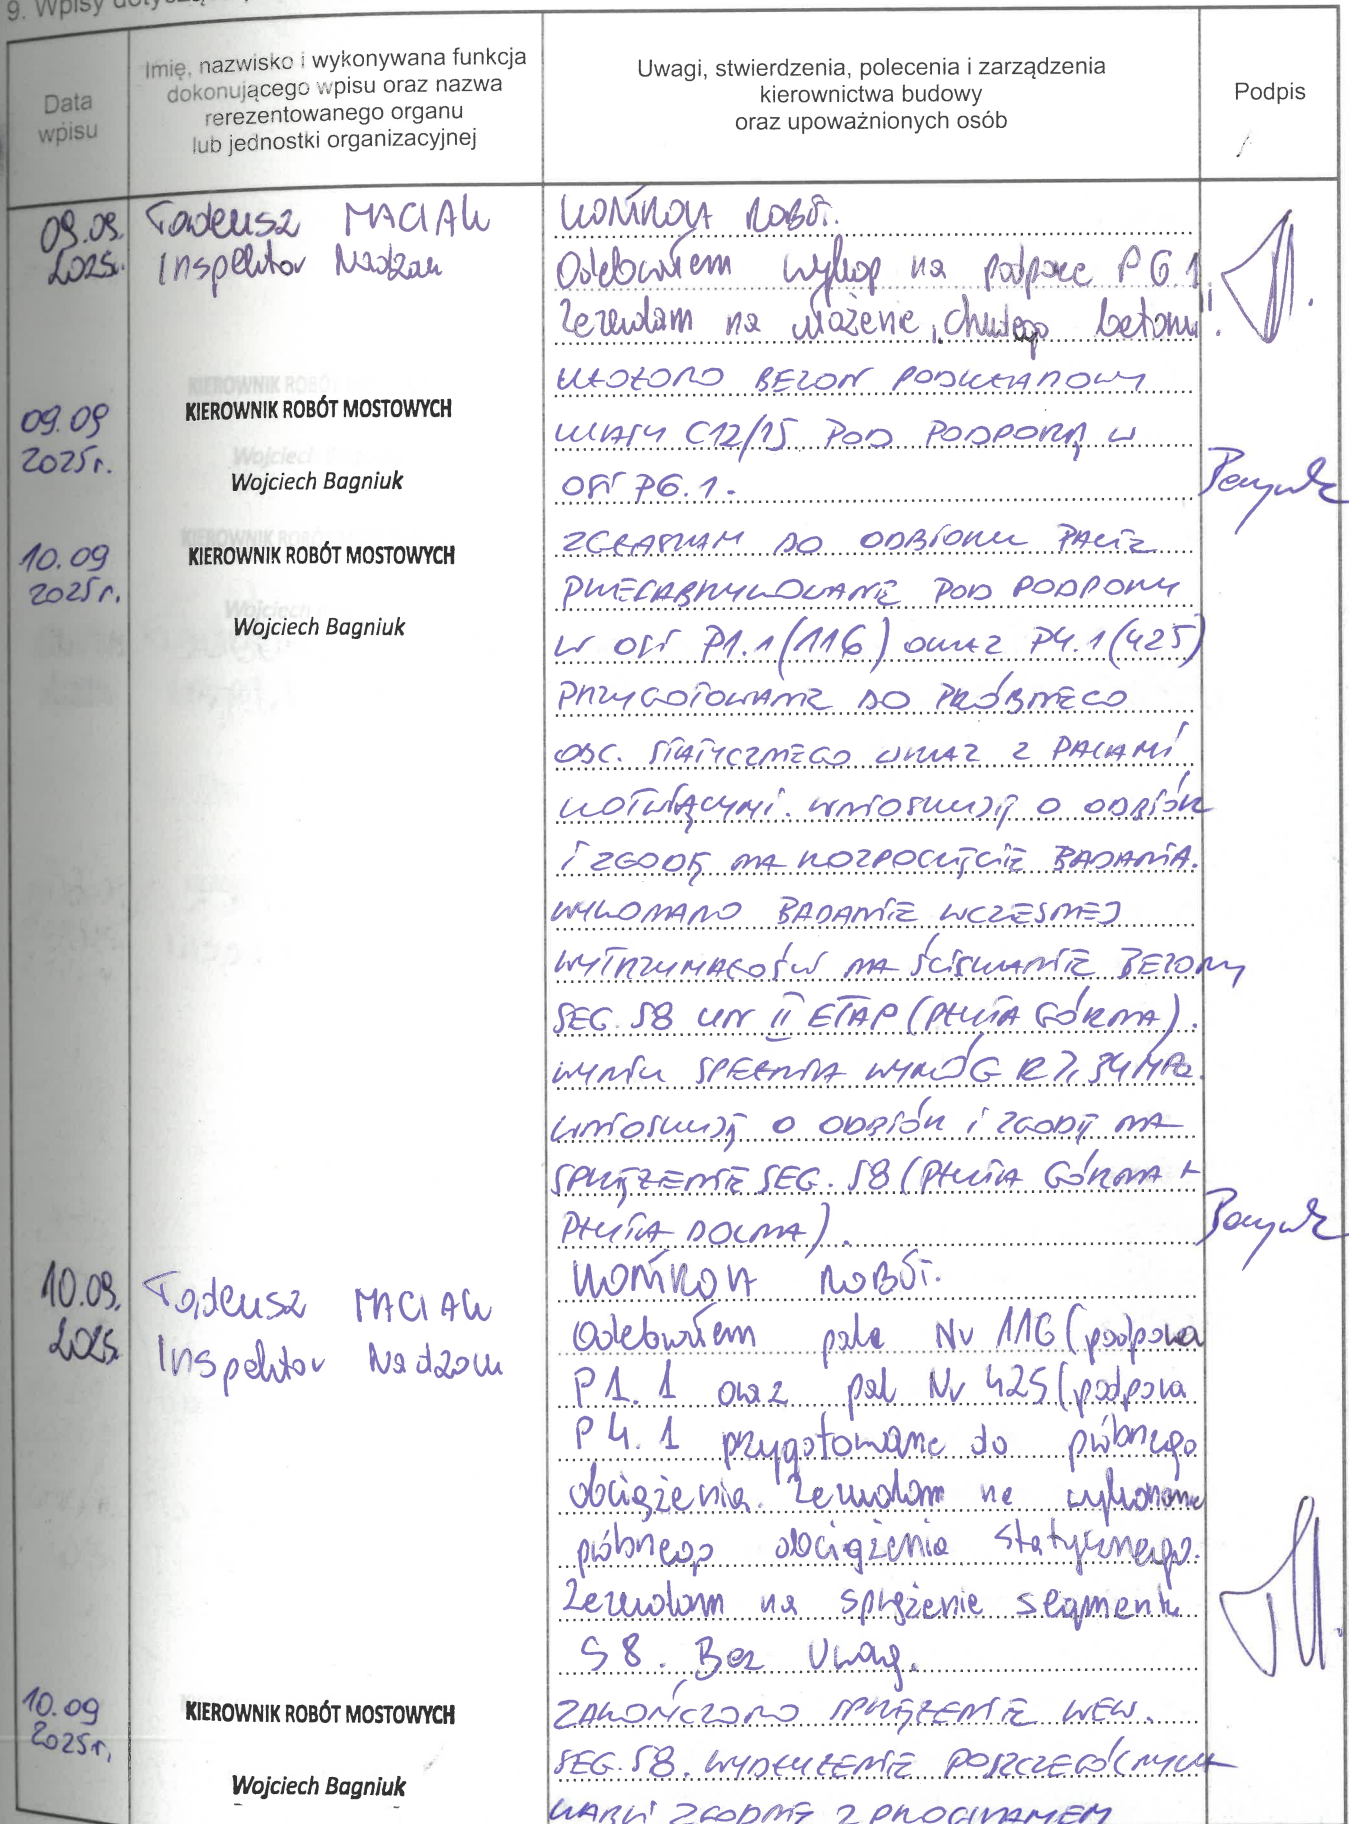 9. Wpisy
Data wpisu
Imię, nazwisko i wykonywana funkcja
dokonującego wpisu oraz nazwa
rerezentowanego organu
lub jednostki organizacyjnej
Uwagi, stwierdzenia, polecenia i zarządzenia
kierownictwa budowy
oraz upoważnionych osób
Podpis
09.09.
2025r.
Tadeusz MACIAK
Inspektor Nadzoru
KONTROLA ROBÓT.
Odebrałem wykop na podporze P6.1
Zezwalam na ułożenie „chudego betonu".
09.09
2025r.
KIEROWNIK ROBÓT MOSTOWYCH
Wojciech Bagniuk
UŁOŻONO BETON PODKŁADOWY
KLASY C12/15 POD PODPORĄ W
OSI P6.1.
10.09
2025r.
KIEROWNIK ROBÓT MOSTOWYCH
Wojciech Bagniuk
ZGŁASZAM DO ODBIORU PALE
PREFABRYKOWANE POD PODPORY
W OSI P1.1(116) ORAZ P4.1(425)
PRZYGOTOWANE DO PRÓBNEGO
OBC. STATYCZNEGO WRAZ Z PALAMI
KOTWIĄCYMI. WNIOSKUJĘ O ODBIÓR
I ZGODĘ NA ROZPOCZĘCIE BADANIA.
WYKONANO BADANIE WCZESNEJ
WYTRZYMAŁOŚCI NA ŚCISKANIE BETONU
SEG. S8 II ETAP (PŁYTA GÓRNA).
WYNIK SPEŁNIA WYMÓG ≥ 34 MPa.
WNIOSKUJĘ O ODBIÓR I ZGODĘ NA
SPRĘŻENIE SEG. S8 (PŁYTA GÓRNA +
PŁYTA DOLNA).
10.09.
2025
Tadeusz MACIAK
Inspektor Nadzoru
KONTROLA ROBÓT.
Odebrałem pale Nr 116 (podpora
P1.1 oraz pal Nr 425 (podpora
P4.1 przygotowane do próbnego
obciążenia. Zezwalam na wykonanie
próbnego obciążenia statycznego.
Zezwalam na sprężenie segmentu
S8. Bez Uwag.
10.09
2025r.
KIEROWNIK ROBÓT MOSTOWYCH
Wojciech Bagniuk
ZAKOŃCZONO SPRĘŻENIE WEW.
SEG. S8. WYDŁUŻENIE POSZCZEGÓLNYCH
KABLI ZGODNE Z PROGRAMEM